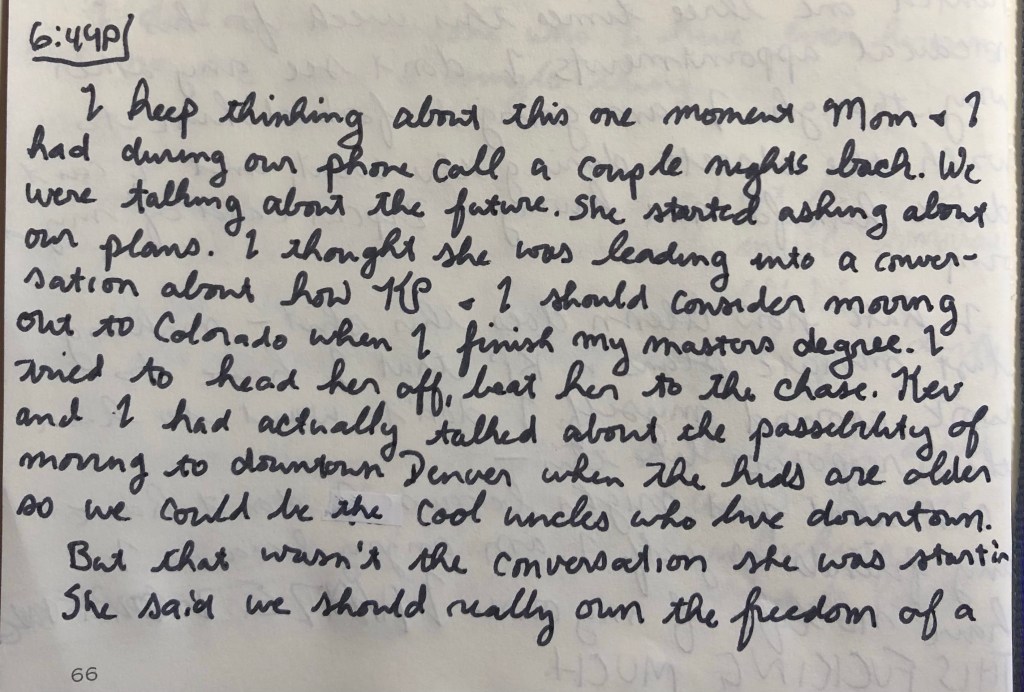 6:44P
I keep thinking about this one moment Mom & I
had during our phone call a couple nights back. We
were talking about the future. She started asking about
our plans. I thought she was leading into a conver-
sation about how KP & I should consider moving
out to Colorado when I finish my masters degree. I
tried to head her off, beat her to the chase. Kev
and I had actually talked about the possibility of
moving to downtown Denver when the kids are older
so we could be the cool uncles who live downtown.
But that wasn't the conversation she was startin
She said we should really own the freedom of a
66